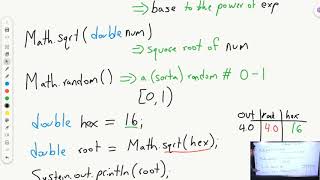 ⇒ base to the power of exp
Math.sqrt(double num)
⇒ square root of num
Math.random() ⇒ a (sorta) random # 0-1
[0,1)
double hex = 16;
double root = Math.sqrt(hex);
System.out.println(root);
out root hex
4.0 4.0 16